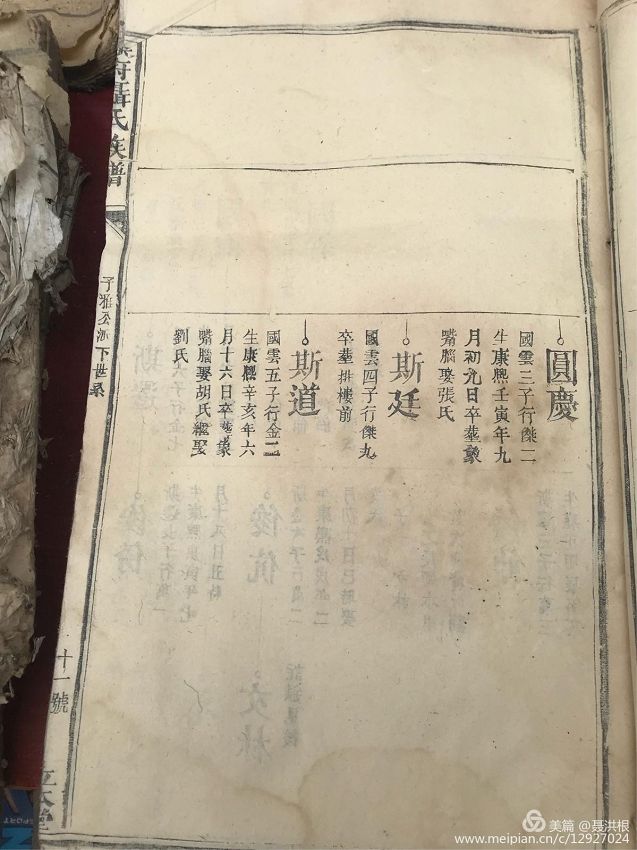 圓慶
國雲三子行傑二
生康熙壬寅年九
月初九日卒葬象
嘴腦娶張氏
斯廷
國雲四子行傑九
卒葬排樓前
斯道
國雲五子行金二
生康熙辛亥年六
月十六日卒葬象
嘴腦娶胡氏繼娶
劉氏
聶氏族譜
下世系
十一號
堂
美篇 @聂洪根
www.meipian.cn/c/12927024